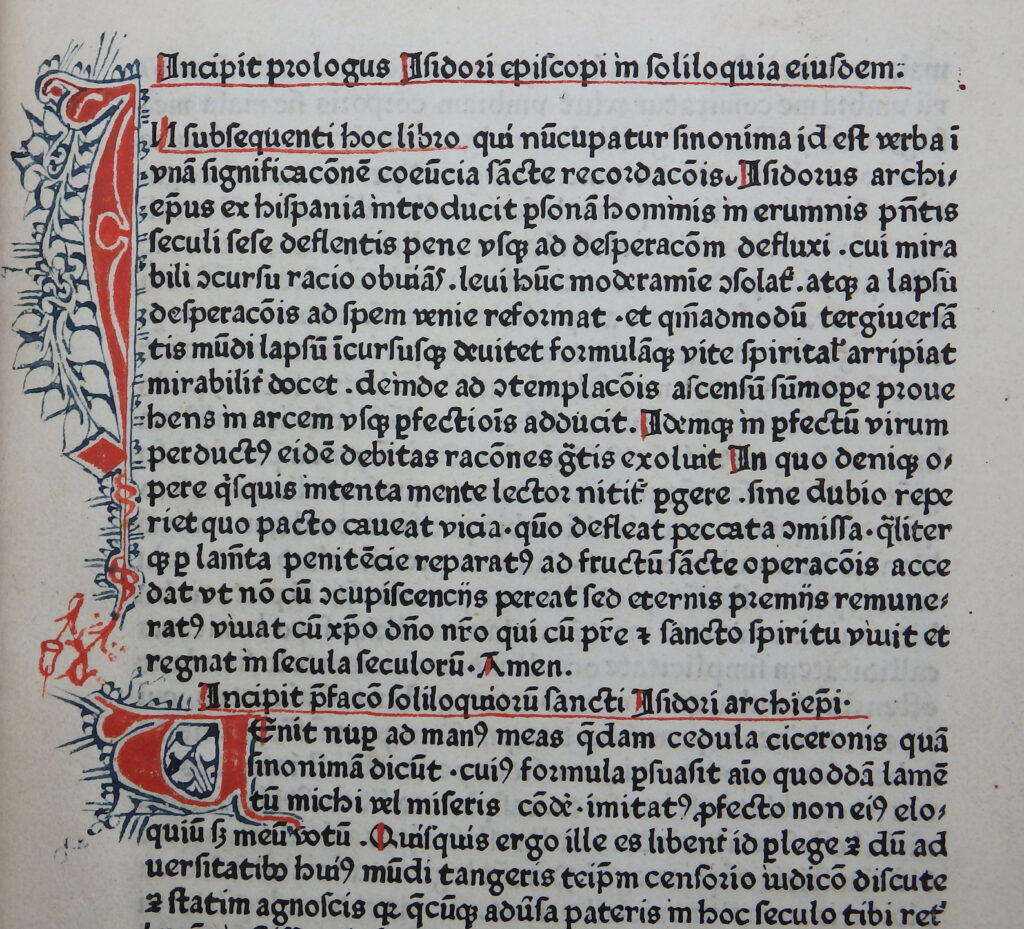 Incipit prologus Isidori episcopi in soliloquia eiusdem:
IN subsequenti hoc libro qui nūcupatur sinonima id est verba ī
vnā significacōnē coeūcia sācte recordacōis. Isidorus archi/
ep̄us ex hispania introducit ꝑsonā hominis in erumnis pn̄tis
seculi sese deflentis pene vsqꝫ ad desperacōm defluxi .cui mira
bili ꝯcursu racio obuiās .leui hūc moderamīe ꝯsolat᷑ .atqꝫ a lapsu
desperacōis ad spem venie reformat .et qm̄admodū tergiuersā
tis mūdi lapsū īcursusqꝫ deuitet formulāqꝫ vite spirital᷑ arripiat
mirabilit᷑ docet .deinde ad ꝯtemplacōis ascensū sūmoꝑe proue
hens in arcem vsqꝫ ꝑfectiois adducit. Idemqꝫ in ꝑfectū virum
perductꝰ eidē debitas racōnes gr̄tis exoluit In quo deniqꝫ o/
pere qͥsquis intenta mente lector nitit᷑ ꝑgere .sine dubio repe
riet quo pacto caueat vicia.quō defleat peccata ꝯmissa.qͣliter
qꝫ ꝑ lam̄ta penitēcie reparatꝰ ad fructū sācte operacōis acce
dat vt nō cū ꝯcupiscencijs pereat sed eternis premijs remune/
ratꝰ viuat cū xp̄o dn̄o nr̄o qui cū pr̄e ꝛ sancto spiritu viuit et
regnat in secula seculorū. Amen.
Incipit p̄facō soliloquiorū sancti Isidori archiep̄i.
VEnit nuꝑ ad manꝰ meas q̄dam cedula ciceronis quā
sinonimā dicūt .cuiꝰ formula ꝑsuasit aīo quoddā lamē
tū michi vel miseris cōde᷑ .imitatꝰ ꝓfecto non eiꝰ elo/
quiū sꝫ meū votū .Quisquis ergo ille es libent᷑ id ꝑlege ꝛ dū ad
uersitatibꝰ huiꝰ mūdi tangeris teip̄m censorio iudicō discute
ꝛ statim agnoscis qꝛ q̄cūqꝫ adūsa pateris in hoc seculo tibi ret᷑